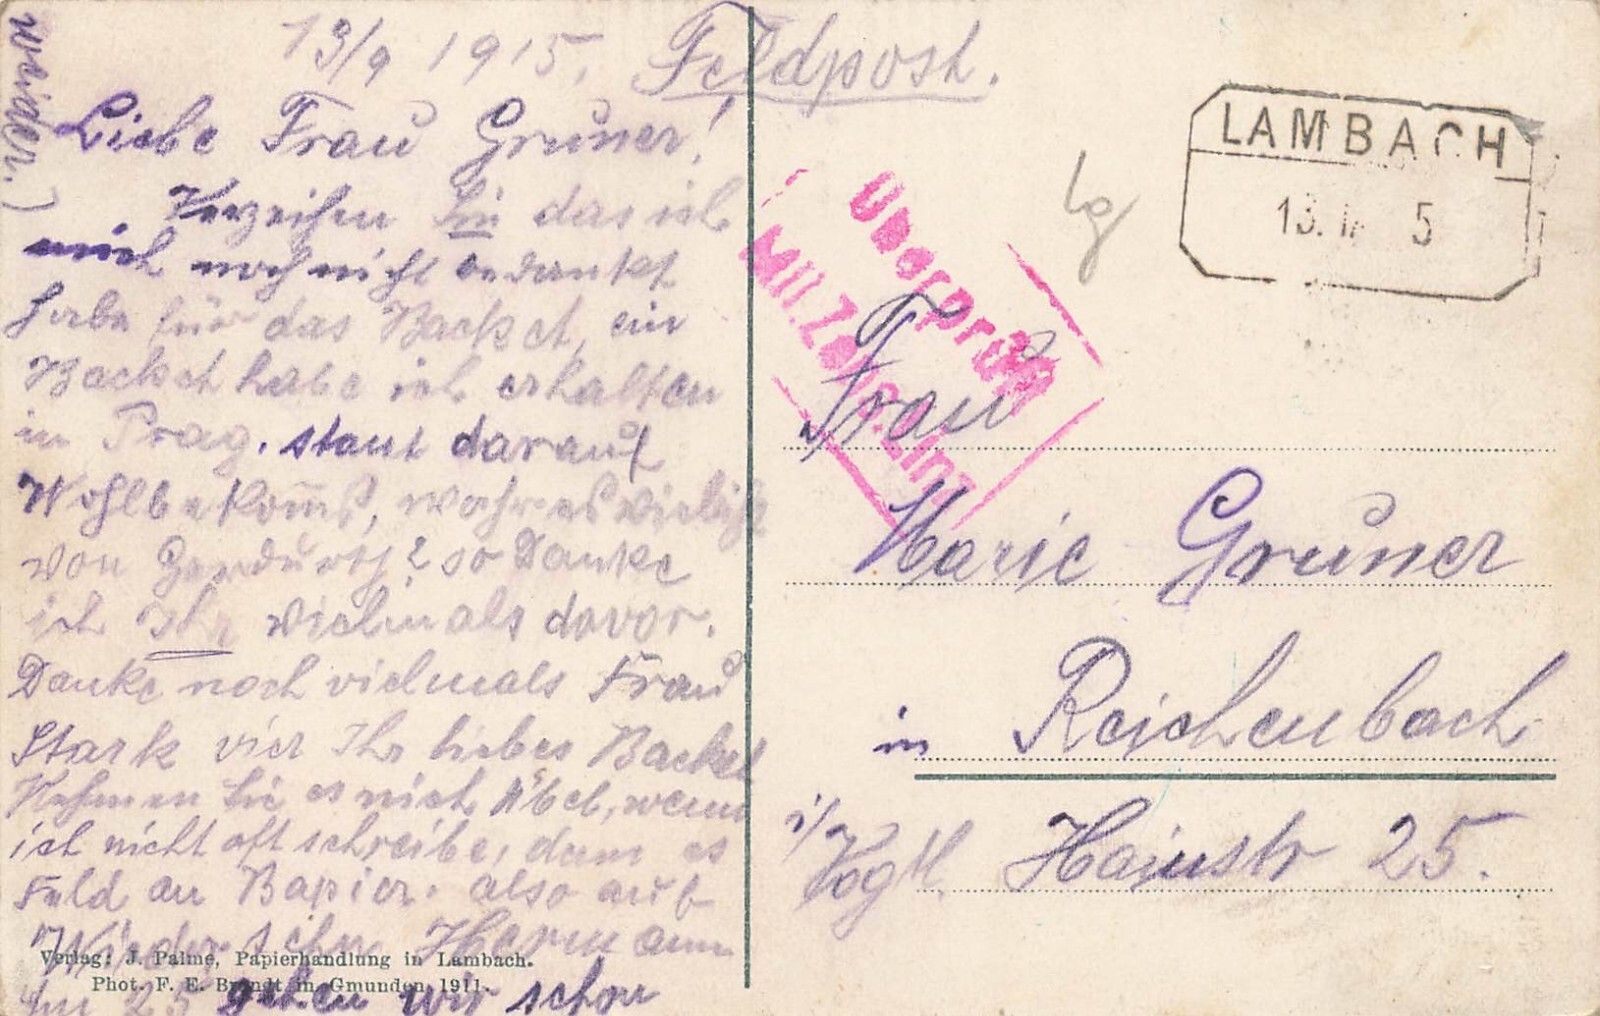 13/9 1915. Feldpost.
Liebe Frau Gruner!
Verzeihen Sie das ich
mich noch nicht bedankt
habe für das Backet, ein
Backet habe ich erhalten
in Prag. stant darauf
Wohlbekoms,
von ? so Danke
ich Ihn vielmals davor.
Danke noch vielmals Frau
Stark vier Ihr liebes Backet
Nehmen Sie es nich übel, wenn
ich nicht oft schreibe, dam es
Feld an Bapier. also auf
Wiedersehn Hermann
Am 25 gehen wir schon
weider.
Verlag: J. Palme, Papierhandlung in Lambach.
Phot. F. E. Brandt in Gmunden 1911.
LAMBACH
13. 5
Überprüft
Mil. Zens. Linz
Frau
Marie Gruner
in Reichenbach
i/Vogtl. Hainstr 25.